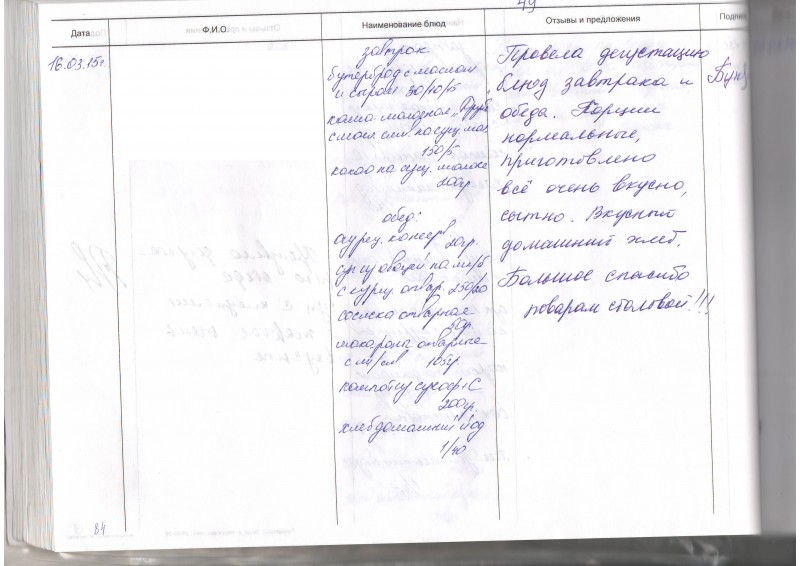 49
Дата
Ф.И.О.
Наименование блюд
Отзывы и предложения
16.03.15г.
завтрак
бутерброд с маслом
и сыром 30/10/5
каша молочная „Друж
смаил слив. на сгущ. мол
150/5
какао на сгущ. молоке
200гр.
обед:
огурец консерв 20гр.
суп из овощей на мк/б
с куриц. отвар. 250/20
сосиска отварная
50гр.
макароны отварные
с м/слив 105гр.
компот из сухофр+С
200гр.
хлеб домашний йод
1/40
Провела дегустацию
блюд завтрака и
обеда. Порции
нормальные,
приготовлено
всё очень вкусно,
сытно. Вкусный
домашний хлеб.
Большое спасибо
поварам столовой!!!
84